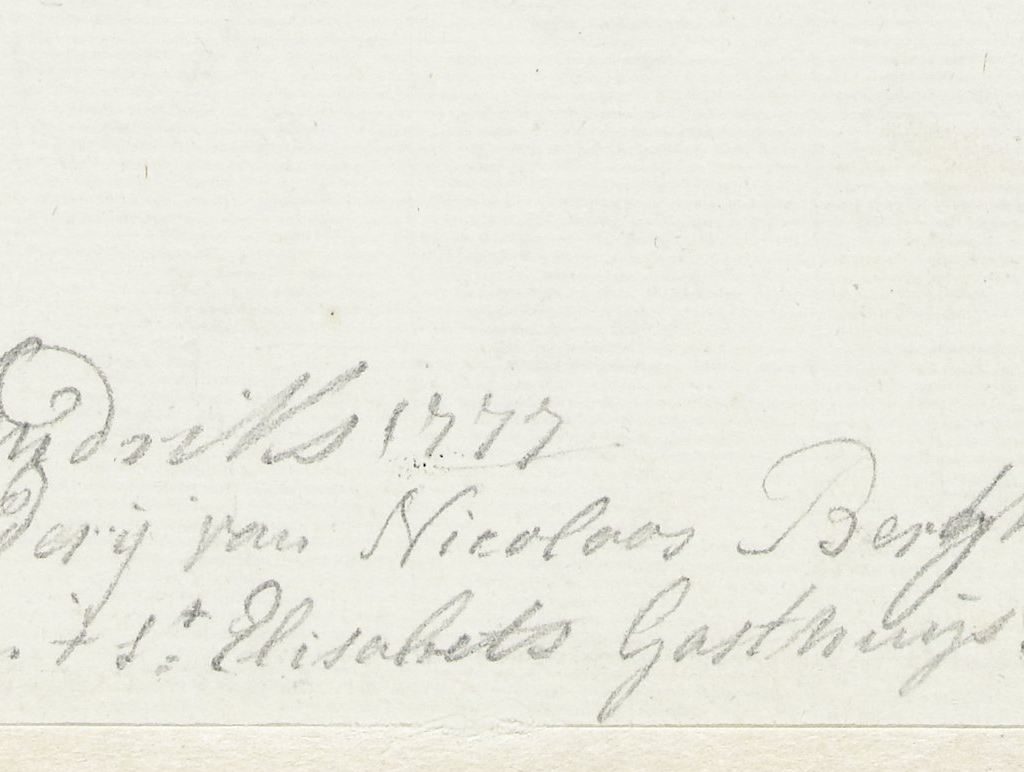 ndriks 1777
derij van Nicolaas Bergh
. 't St: Elisabets Gasthuijs